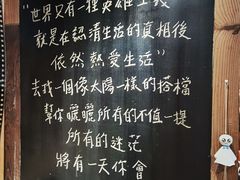 "世界只有一種英雄主義
就是在認清生活的真相後
依然熱愛生活"
去找一個像太陽一樣的搭檔
幫你曬曬所有的不值一提
所有的迷茫
將有一天你會